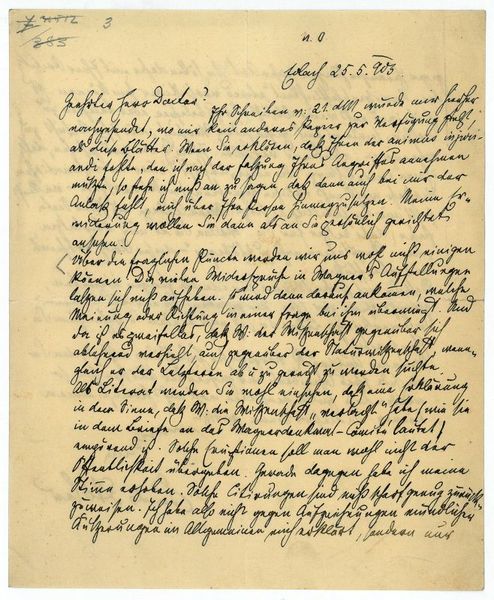 3
Edlach 25.5.903
Geehrter Herr Doctor!
Ihr Schreiben v. 21. d M wurde mir hieher
nachgesendet, wo mir kein anderes Papier zur Verfügung steht
als diese Blätter. Wenn Sie erklären, daß Ihnen der animus injuri-
andi fehlte, den ich nach der Fassung Ihres Angriffes annehmen
mußte, so stehe ich nicht an zu sagen, daß dann auch bei mir der
Anlaß fehlt, mich über Ihre Person hinwegzusetzen. Meine Er-
widerung wollen Sie dann als an Sie persönlich gerichtet
ansehen.
Über die fraglichen Puncte werden wir uns wohl nicht einigen
können. Die vielen Widersprüche in Wagner's Aufstellungen
lassen sich nicht aufheben. Es wird dann darauf ankommen, welche
Meinung oder Richtung in einer Frage bei ihm überwiegt. Und
da ist es zweifellos, daß W. der Wissenschaft gegenüber sich
ablehnend verhielt, auch gegenüber der Naturwissenschaft, wenn-
gleich er der Letzteren zu gerecht zu werden suchte.
Als Literat werden Sie wohl einsehen, daß eine Erklärung
in dem Sinne, daß W. die Wissenschaft „verlacht“ habe, (wie sie
in dem Briefe an das Wagnerdenkmal-Comité lautet)
empörend ist. Solche soll man wohl nicht der
Öffentlichkeit übergeben. Gerade dagegen habe ich meine
Stimme erhoben. Solche Citirungen sind nicht scharf genug zurück-
zuweisen. Ich habe also nicht gegen mündlicher
Äußerungen im Allgemeinen mich erklärt, sondern nur